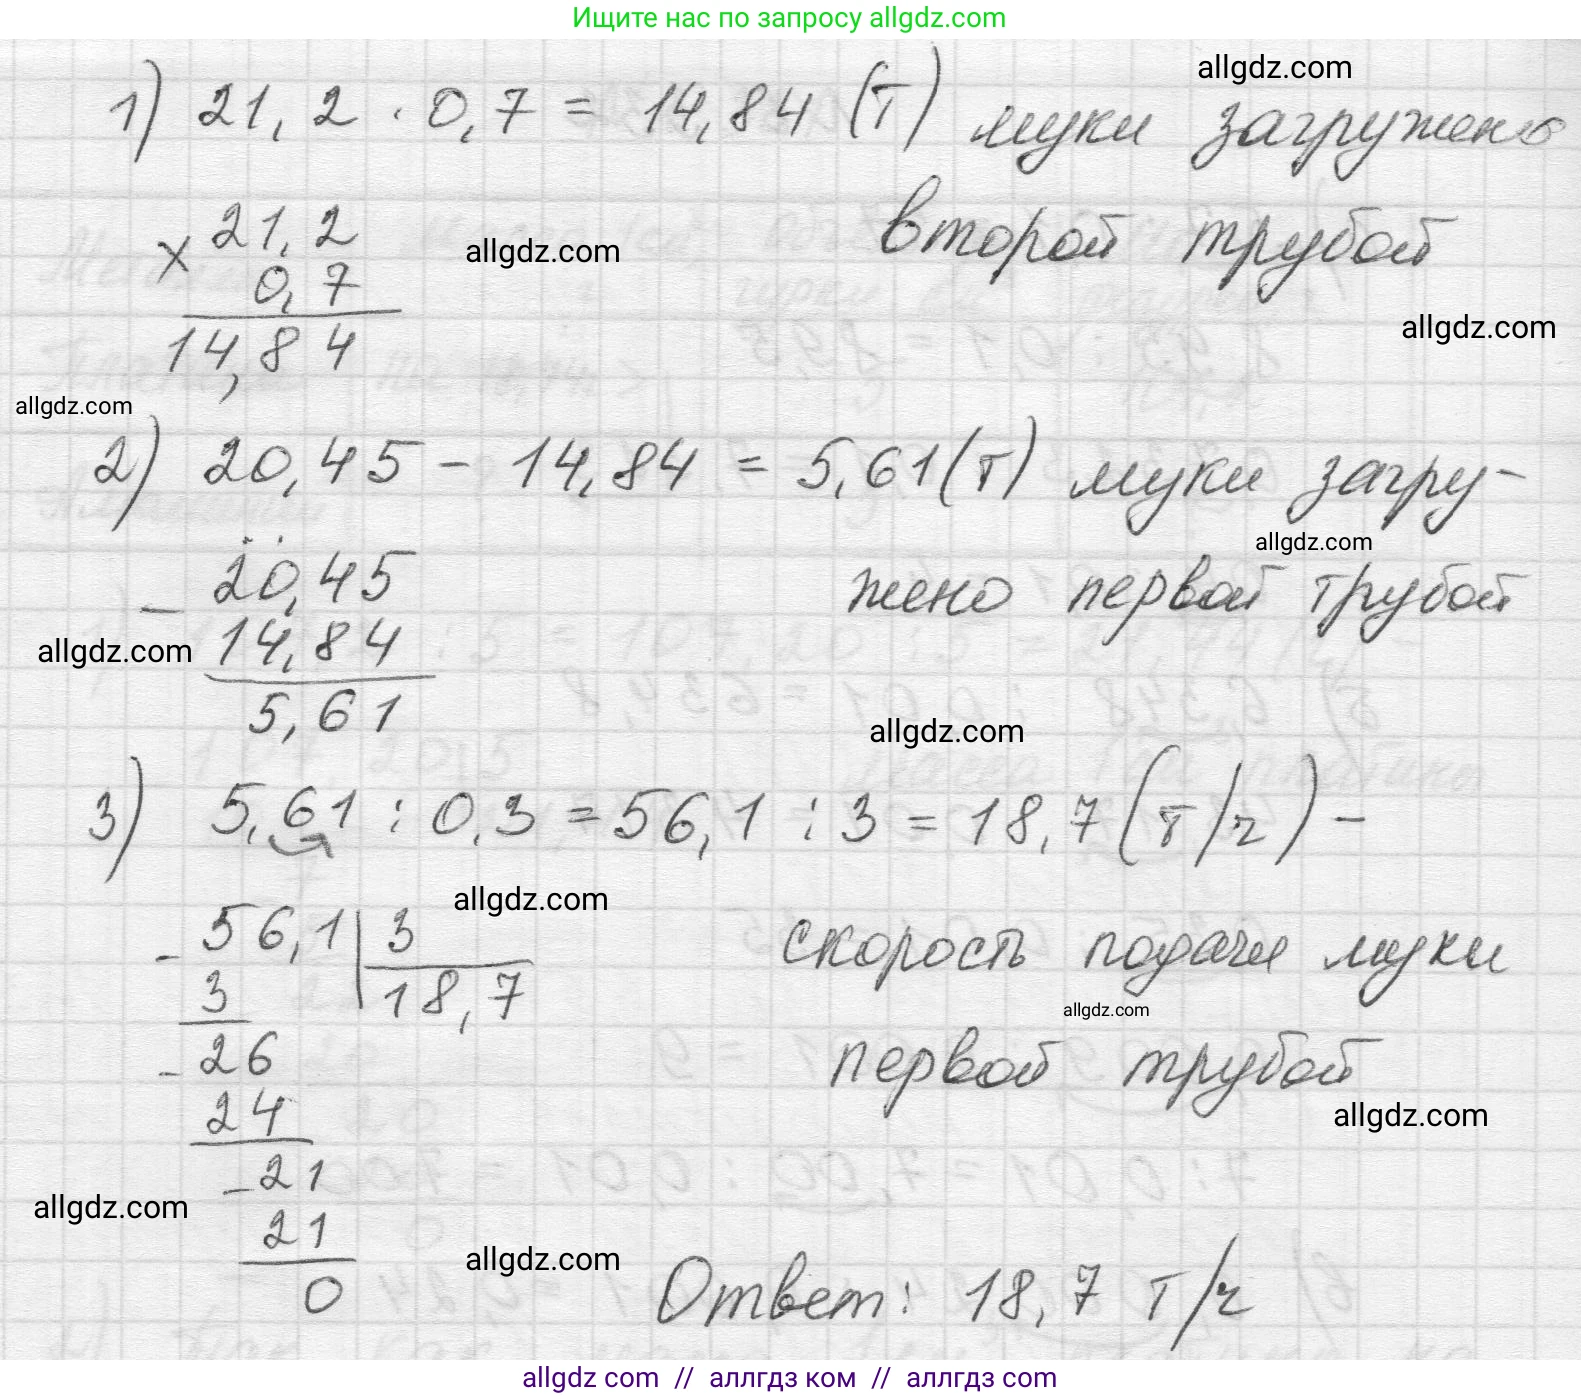 Ищите нас по запросу allgdz.com
allgdz.com
1) 21,2 · 0,7 = 14,84 (т) муки загружено
второй трубой
× 21,2
0,7
14,84
allgdz.com
allgdz.com
allgdz.com
2) 20,45 - 14,84 = 5,61 (т) муки загру-
allgdz.com
жено первой трубой
- 20,45
14,84
5,61
allgdz.com
allgdz.com
3) 5,61 : 0,3 = 56,1 : 3 = 18,7 (т/ч) -
allgdz.com
скорость подачи муки
allgdz.com
первой трубой
allgdz.com
- 56,1 | 3
3 18,7
- 26
24
- 21
21
0
allgdz.com
allgdz.com
Ответ: 18,7 т/ч
allgdz com // аллгдз ком // аллгдз com